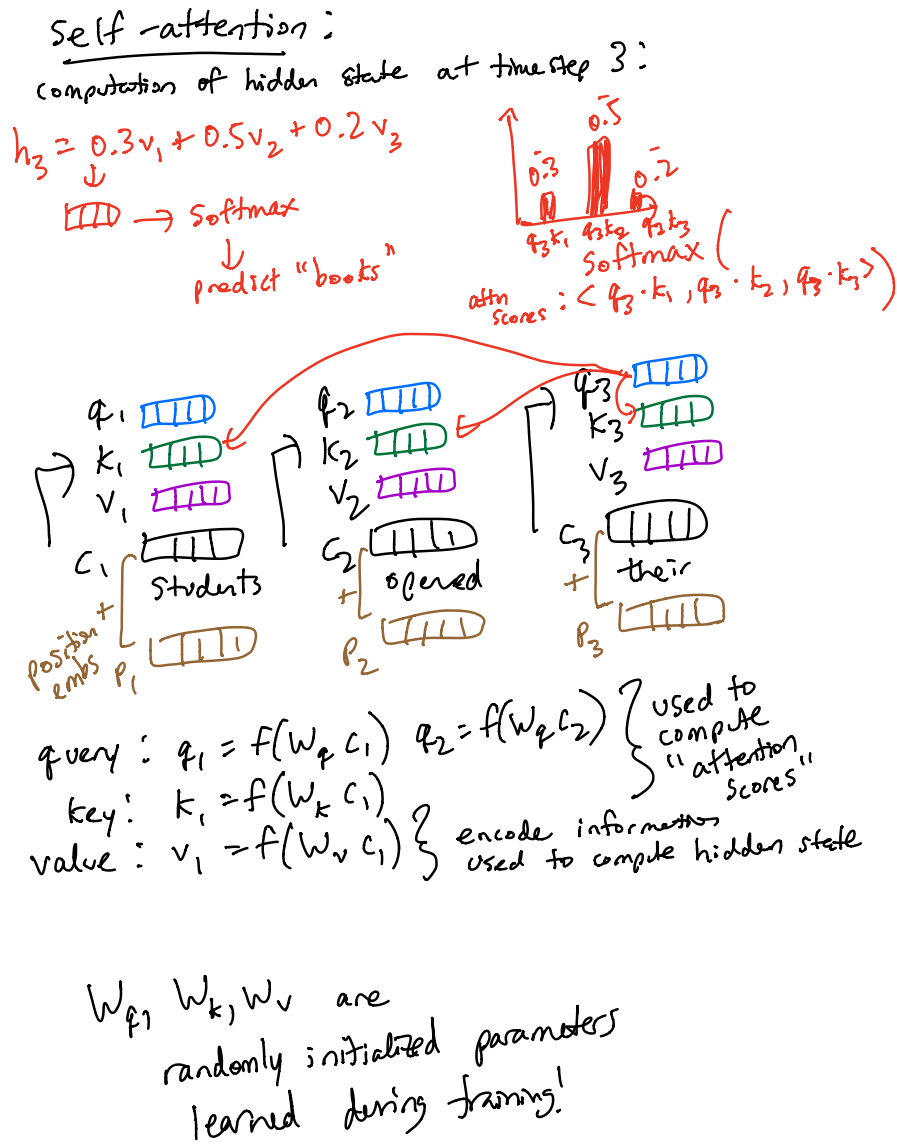 self-attention:
computation of hidden state at timestep 3:
h₃ = 0.3v₁ + 0.5v₂ + 0.2v₃
→ softmax
predict "books"
0.3
0.5
0.2
q₃k₁ q₃k₂ q₃k₃
softmax (
attn scores : < q₃·k₁, q₃·k₂, q₃·k₃ > )
q₁
k₁
v₁
c₁
students
+
position embs
p₁
q₂
k₂
v₂
c₂
opened
+
p₂
q₃
k₃
v₃
c₃
their
+
p₃
query : q₁ = f(W_q c₁) q₂ = f(W_q c₂)
key: k₁ = f(W_k c₁)
used to
compute
"attention
scores"
value : v₁ = f(W_v c₁)
encode information
used to compute hidden state
W_q, W_k, W_v are
randomly initialized parameters
learned during training!